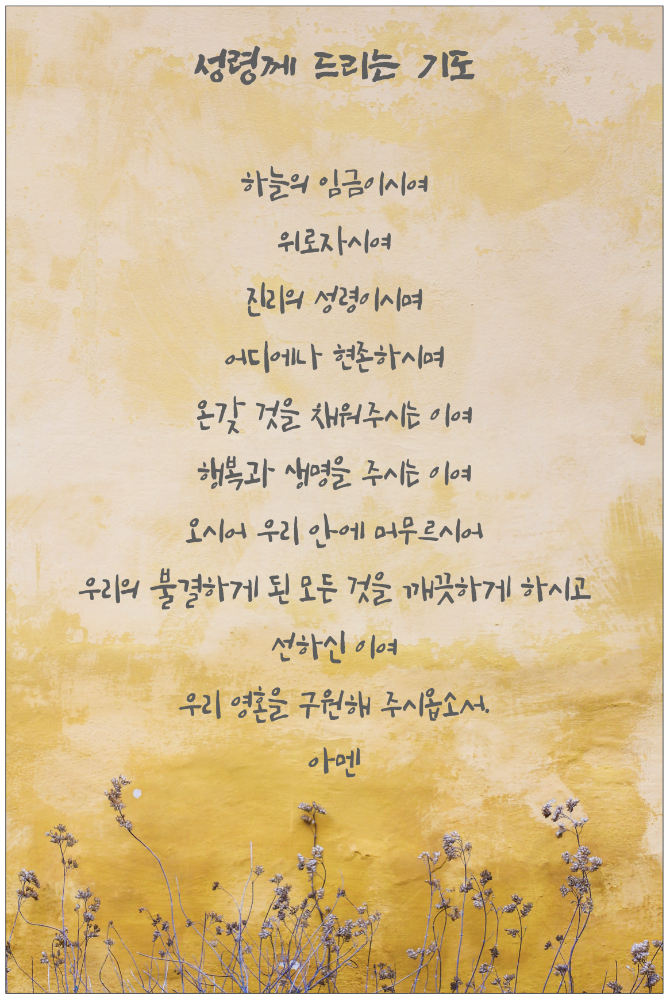 성령께 드리는 기도
하늘의 임금이시여
위로자시여
진리의 성령이시며
어디에나 현존하시며
온갖 것을 채워주시는 이여
행복과 생명을 주시는 이여
오시어 우리 안에 머무르시어
우리의 불결하게 된 모든 것을 깨끗하게 하시고
선하신 이여
우리 영혼을 구원해 주시옵소서.
아멘